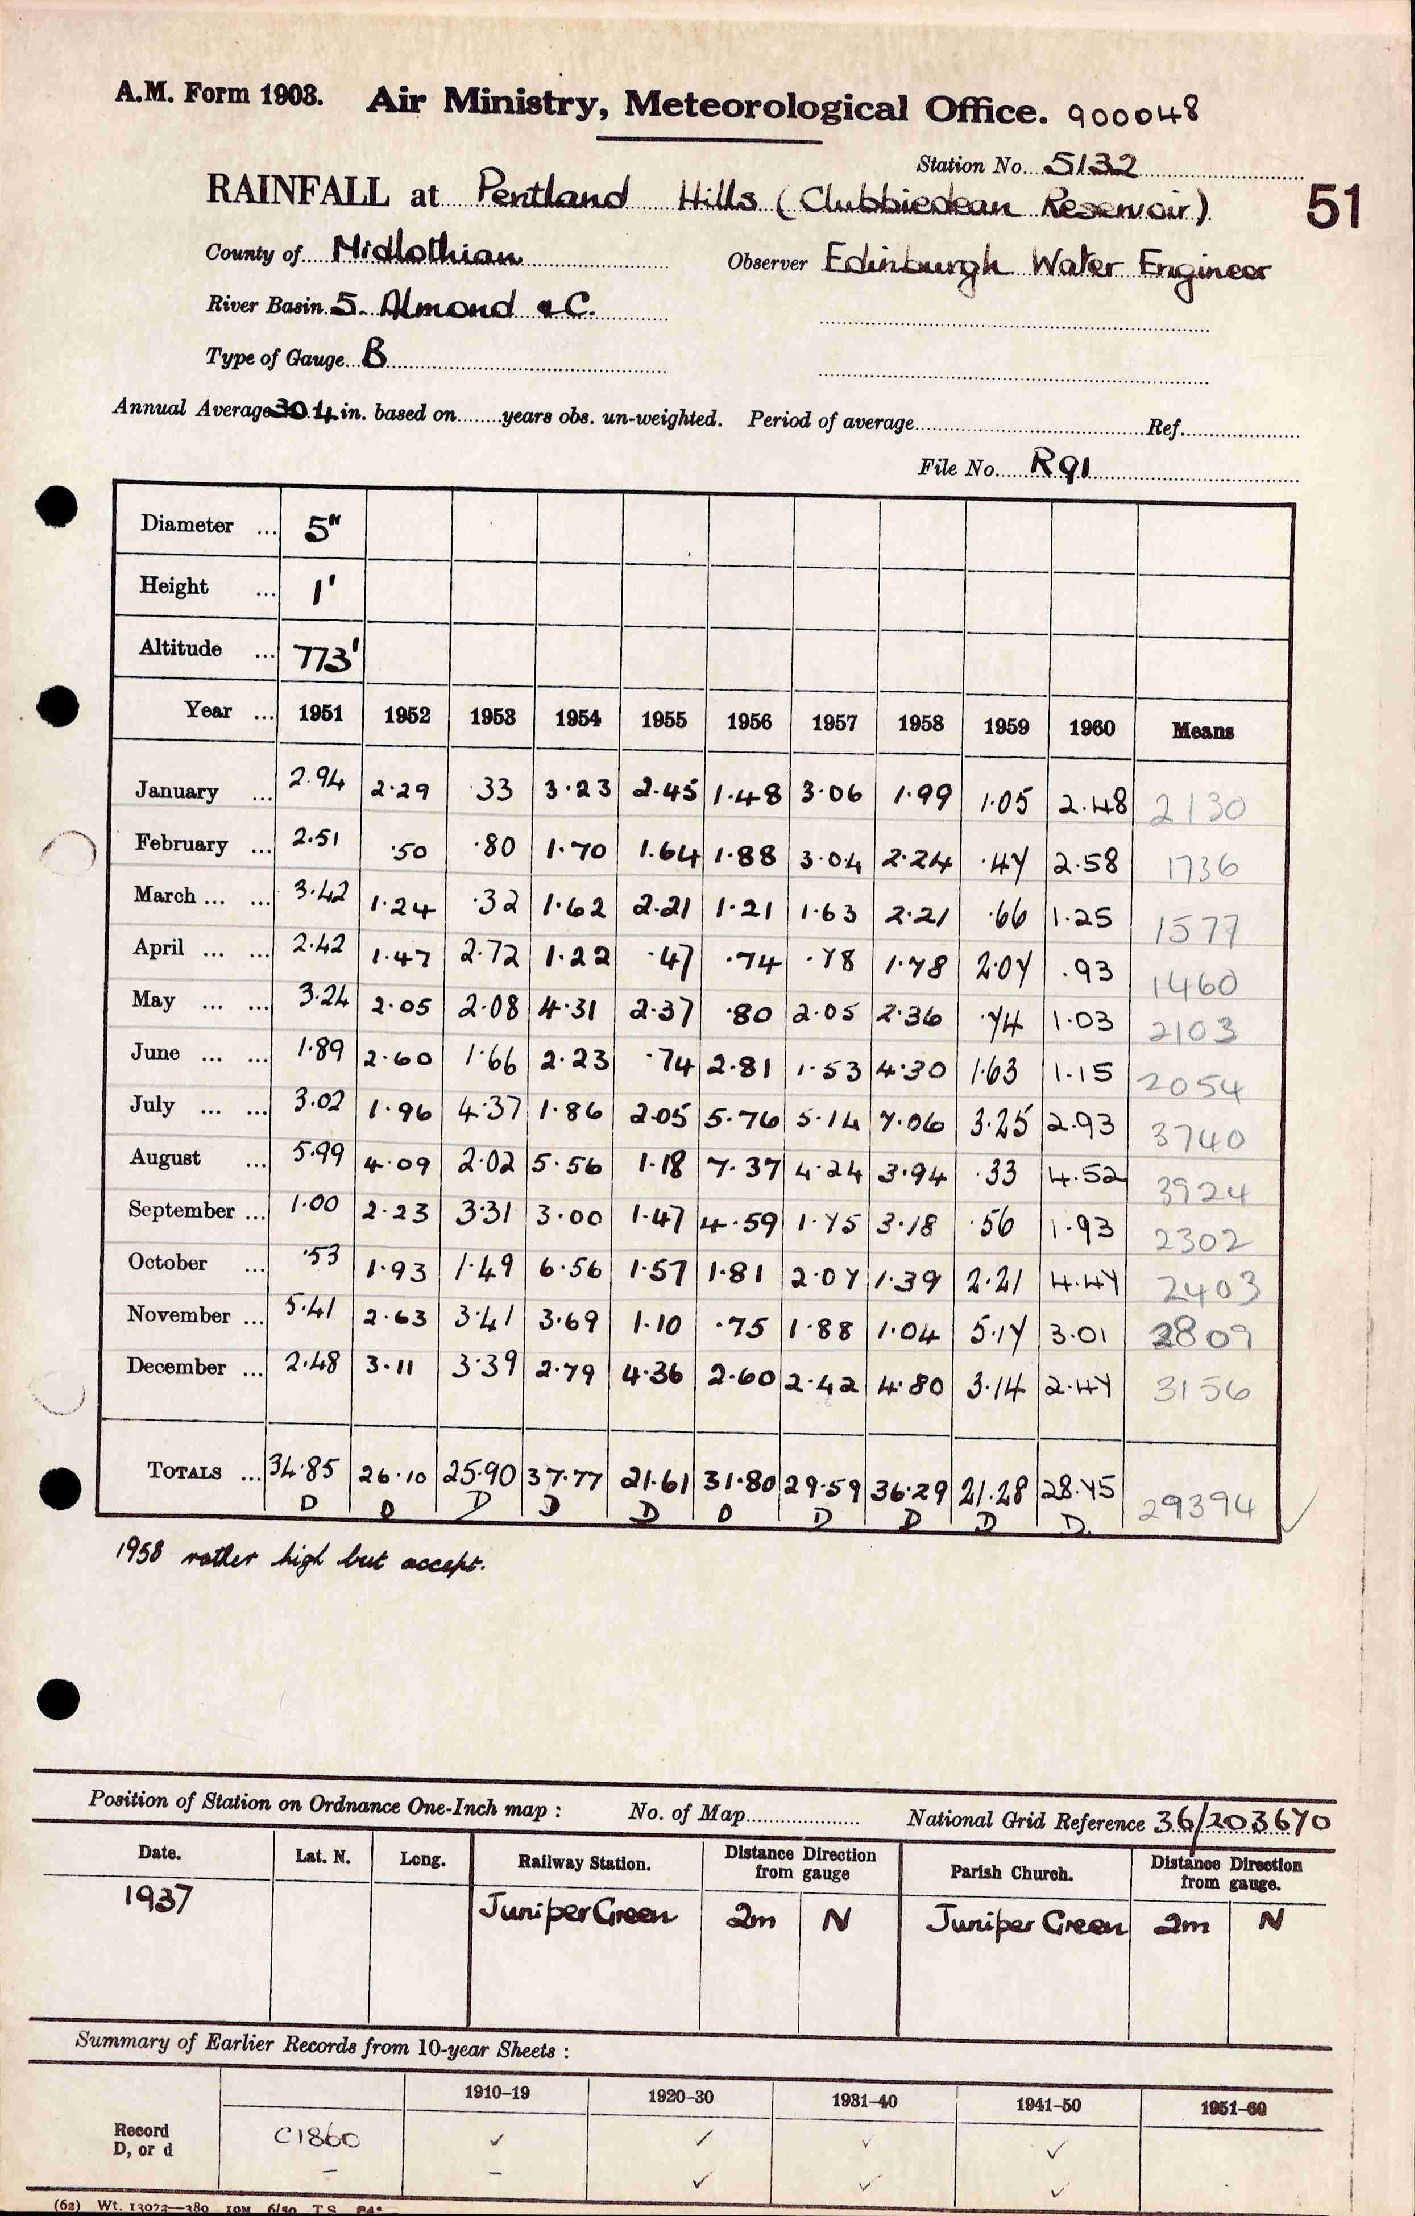 A.M. Form 1903. Air Ministry, Meteorological Office. 900048
Station No. 5132
RAINFALL at Pentland Hills (Clubbiedean Reservoir) 51
County of Midlothian Observer Edinburgh Water Engineer
River Basin 5. Almond &C.
Type of Gauge B
Annual Average 30.4 in. based on years obs. un-weighted. Period of average Ref.
File No. R91
Diameter ... 5"
Height ... 1'
Altitude ... 773'
Year ... 1951 1952 1953 1954 1955 1956 1957 1958 1959 1960 Means
January ... 2.94 2.29 .33 3.23 2.45 1.48 3.06 1.99 1.05 2.48 2130
February ... 2.51 .50 .80 1.70 1.64 1.88 3.04 2.24 .47 2.58 1736
March ... ... 3.42 1.24 .32 1.62 2.21 1.21 1.63 2.21 .66 1.25 1577
April ... ... 2.42 1.47 2.72 1.22 .47 .74 .78 1.78 2.07 .93 1460
May ... ... 3.24 2.05 2.08 4.31 2.37 .80 2.05 2.36 .74 1.03 2103
June ... ... 1.89 2.60 1.66 2.23 .74 2.81 1.53 4.30 1.63 1.15 2054
July ... ... 3.02 1.96 4.37 1.86 2.05 5.76 5.14 7.06 3.25 2.93 3740
August ... 5.99 4.09 2.02 5.56 1.18 7.37 4.24 3.94 .33 4.52 3924
September ... 1.00 2.23 3.31 3.00 1.47 4.59 1.75 3.18 .56 1.93 2302
October ... .53 1.93 1.49 6.56 1.57 1.81 2.07 1.39 2.21 4.47 2403
November ... 5.41 2.63 3.41 3.69 1.10 .75 1.88 1.04 5.17 3.01 2809
December ... 2.48 3.11 3.39 2.79 4.36 2.60 2.42 4.80 3.14 2.47 3156
TOTALS ... 34.85 26.10 25.90 37.77 21.61 31.80 29.59 36.29 21.28 28.75 29394
D D D D D D D D D D.
1958 rather high but accept.
Position of Station on Ordnance One-Inch map : No. of Map National Grid Reference 36/203670
Date. Lat. N. Long. Railway Station. Distance Direction from gauge Parish Church. Distance Direction from gauge.
1937 Juniper Green 2m N Juniper Green 2m N
Summary of Earlier Records from 10-year Sheets :
1910-19 1920-30 1931-40 1941-50 1951-60
Record C1860 ✓ ✓ ✓ ✓
D, or d - - ✓ ✓ ✓